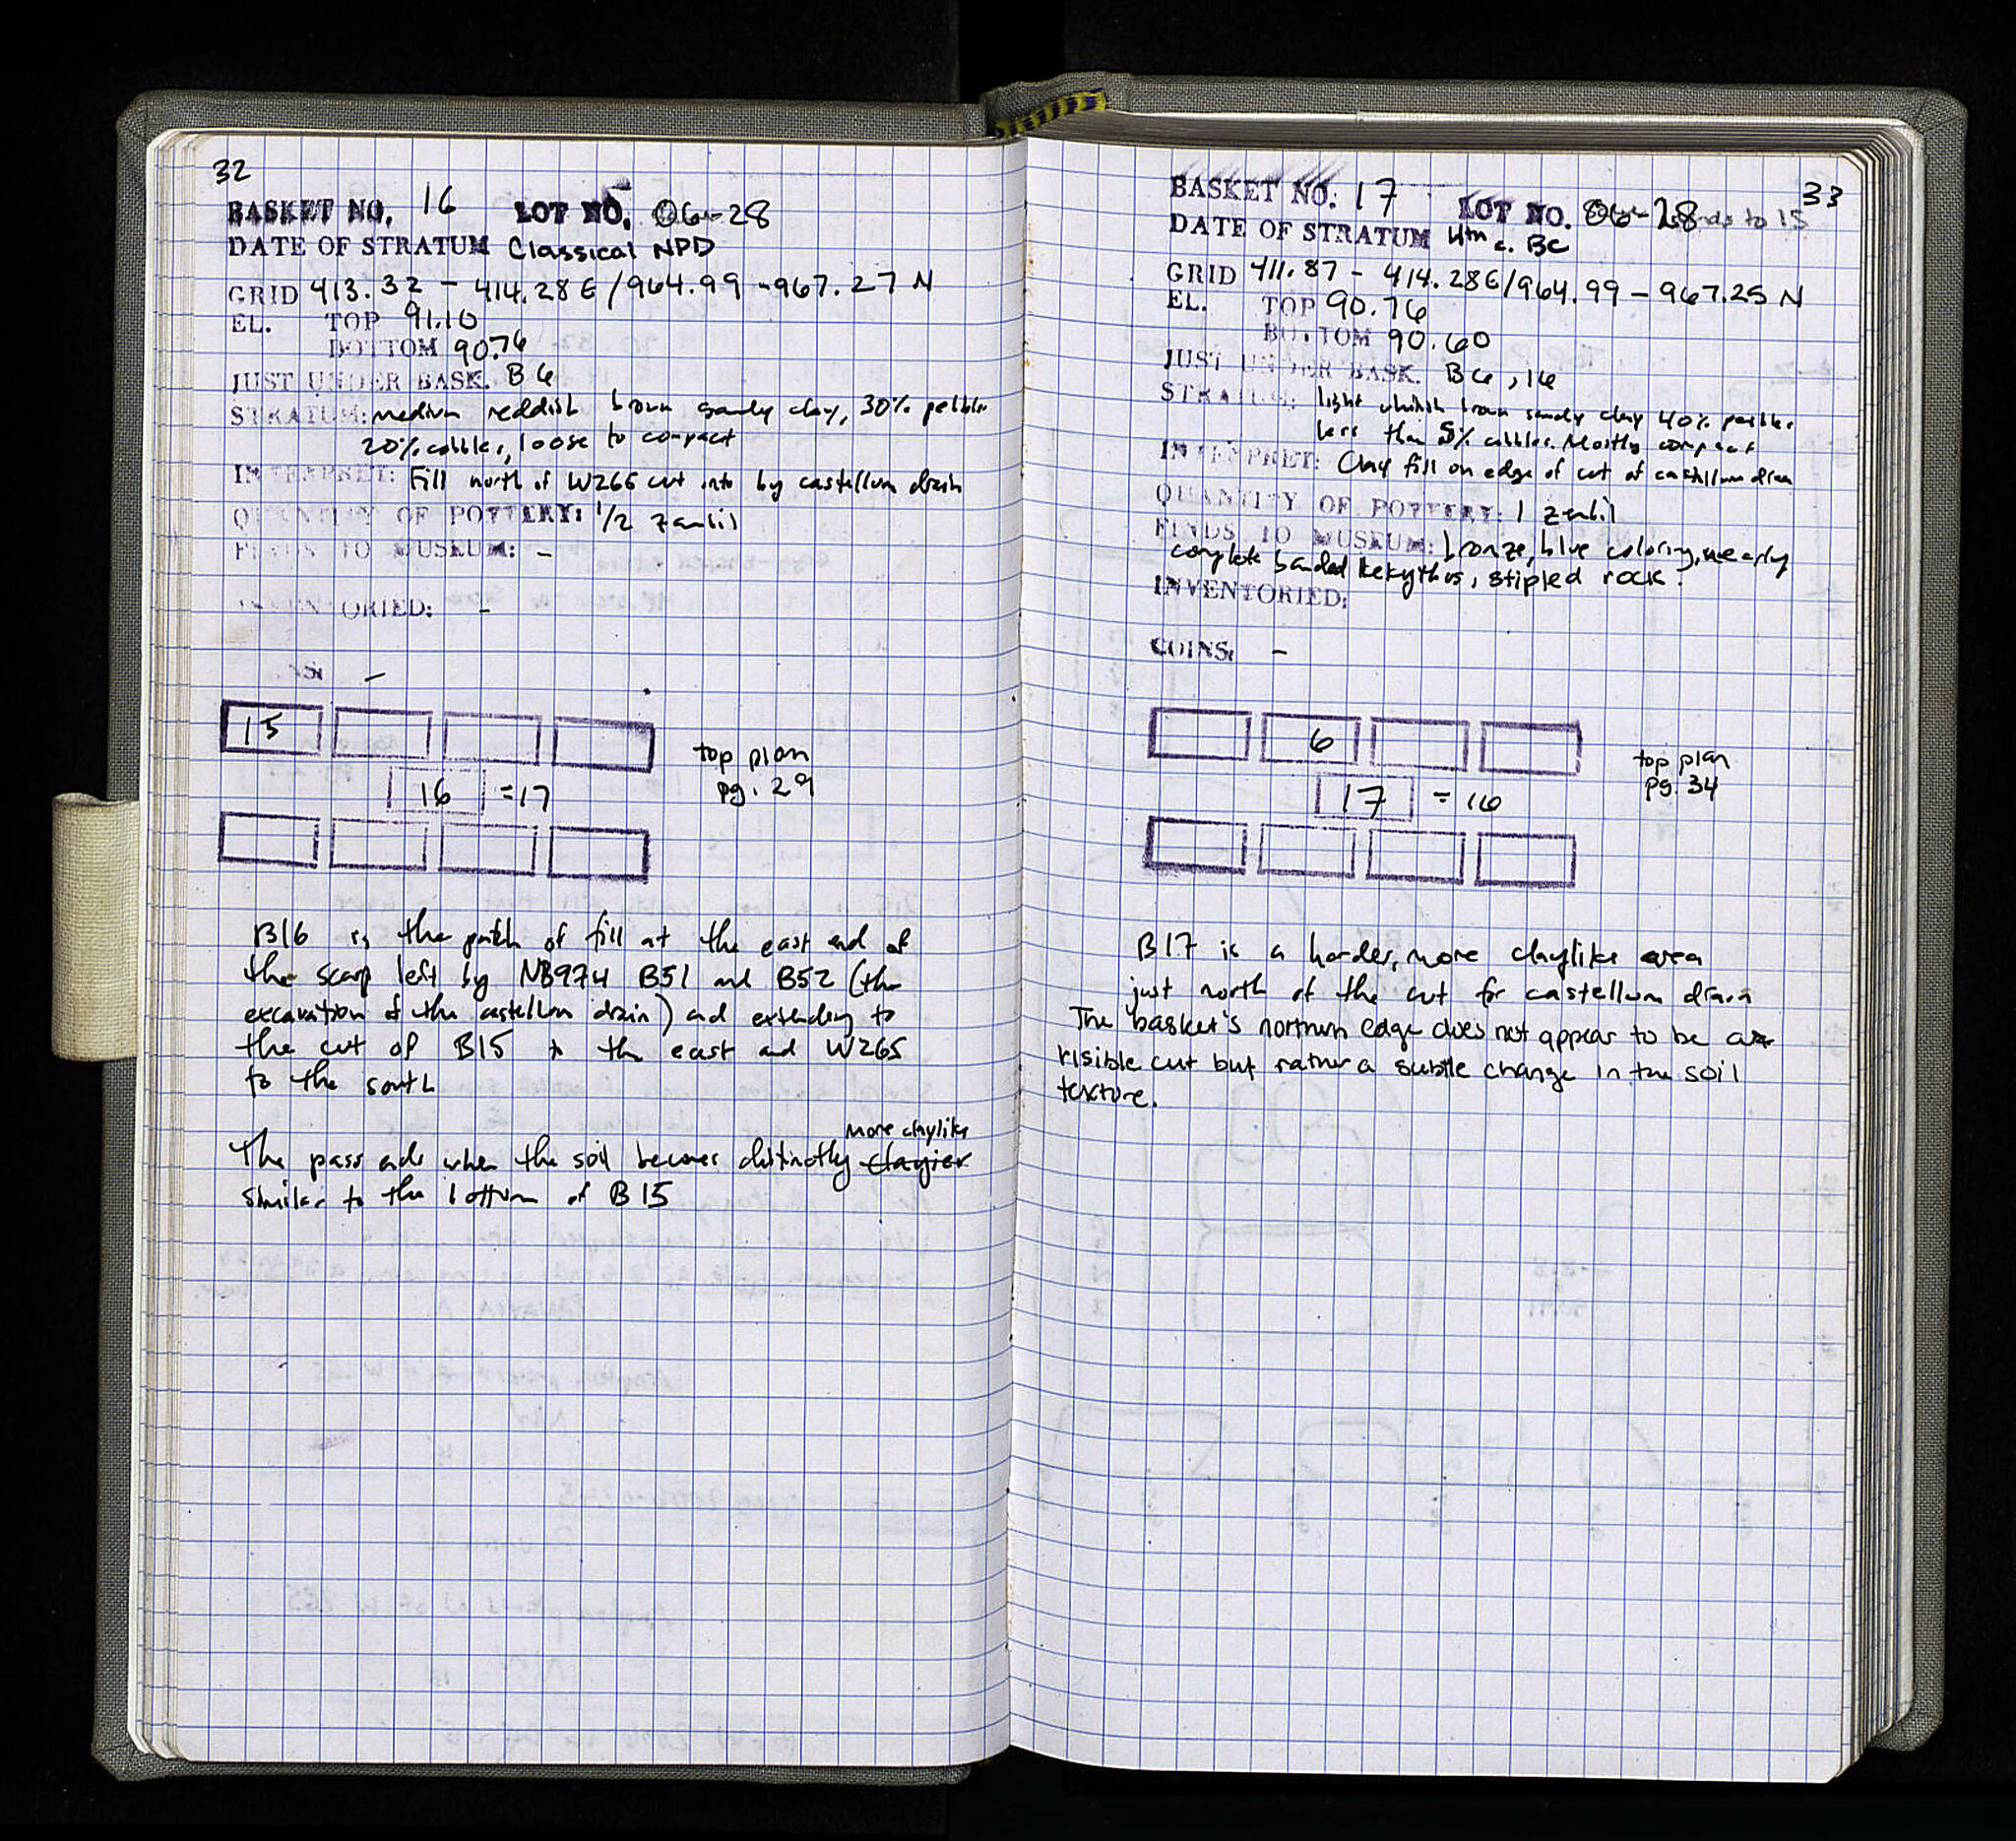 32
BASKET NO. 16 LOT NO. 06-28
DATE OF STRATUM Classical NPD
GRID 413.32 - 414.28 E/964.99 -967.27 N
EL. TOP 91.10
BOTTOM 90.76
JUST UNDER BASK. B6
STRATUM: medium reddish brown sandy clay, 30% pebbles
20% cobbles, loose to compact
INTERPRET: Fill north of W265 cut into by castellum drain
QUANTITY OF POTTERY: 1/2 zanbil
FINDS TO MUSEUM: -
INVENTORIED: -
NS: -
15
16 =17
top plan
pg. 29
B16 is the patch of fill at the east end of
the scarp left by NB974 B51 and B52 (the
excavation of the castellum drain) and extending to
the cut of B15 to the east and W265
to the south
more claylike
The pass ends when the soil becomes distinctly clayier
similar to the bottom of B15
33
BASKET NO. 17 LOT NO. 06-28 to 15
DATE OF STRATUM 4th c. BC
GRID 411.87 - 414.28E/964.99 - 967.25 N
EL. TOP 90.76
BOTTOM 90.60
JUST UNDER BASK. B6, 16
STRATUM: light whitish brown sandy clay 40% pebbles
less than 5% cobbles. Mostly compact
INTERPRET: Clay fill on edge of cut of castellum drain
QUANTITY OF POTTERY: 1 zanbil
FINDS TO MUSEUM: bronze, blue coloring, nearly
complete banded lekythos, stipled rock.
INVENTORIED:
COINS: -
6
17 = 16
top plan
pg. 34
B17 is a harder, more claylike area
just north of the cut for castellum drain
The basket's northern edge does not appear to be a
visible cut but rather a subtle change in the soil
texture.